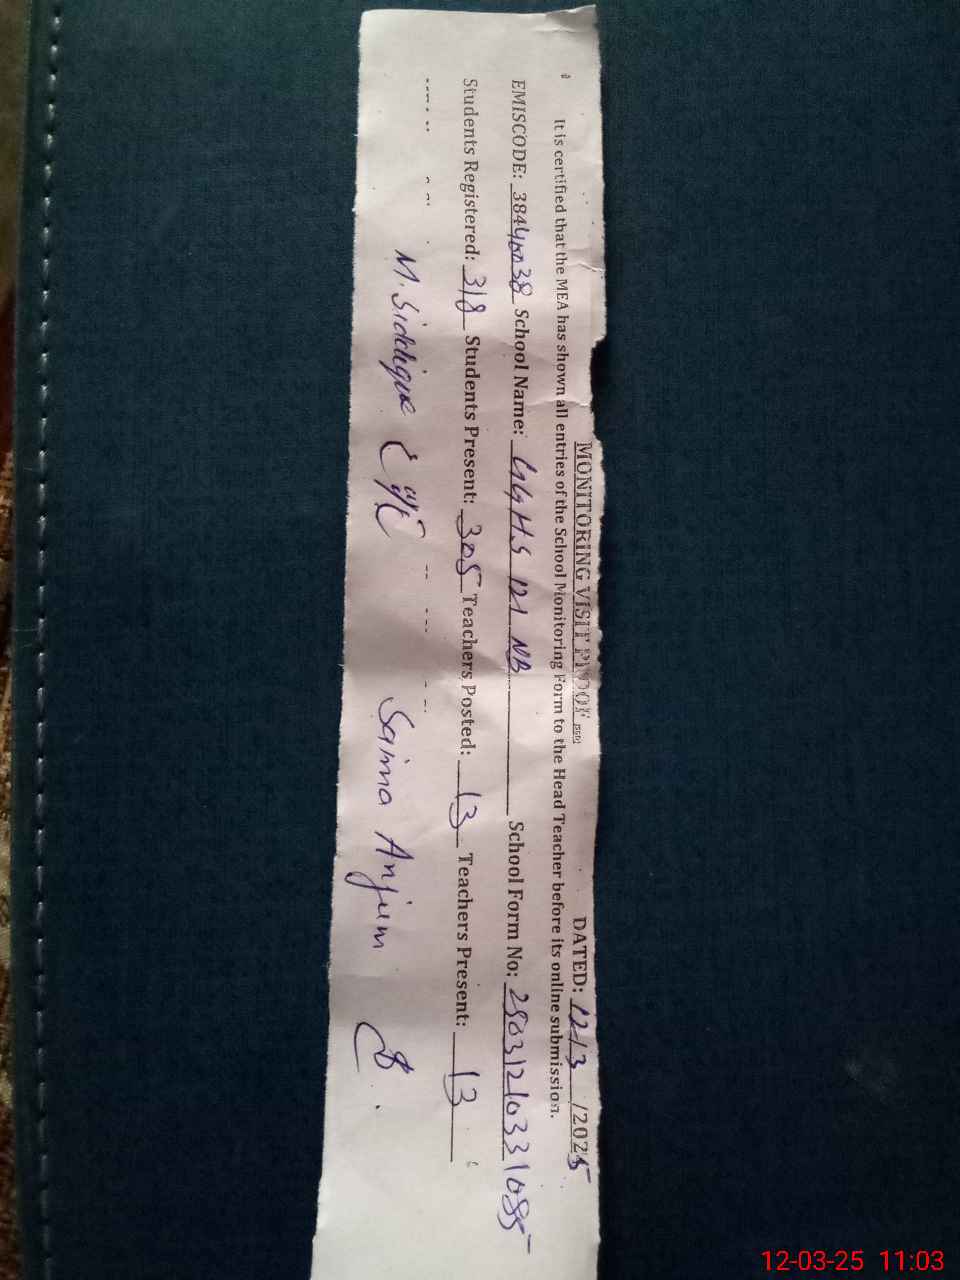 MONITORING VISIT PROOF DATED: 12/3 /2025
It is certified that the MEA has shown all entries of the School Monitoring Form to the Head Teacher before its online submission.
EMISCODE: School Name: GGHS 121 NB School Form No:
Students Registered: 318 Students Present: 305 Teachers Posted: 13 Teachers Present: 13
M. Siddique Saima Anjum
12-03-25 11:03